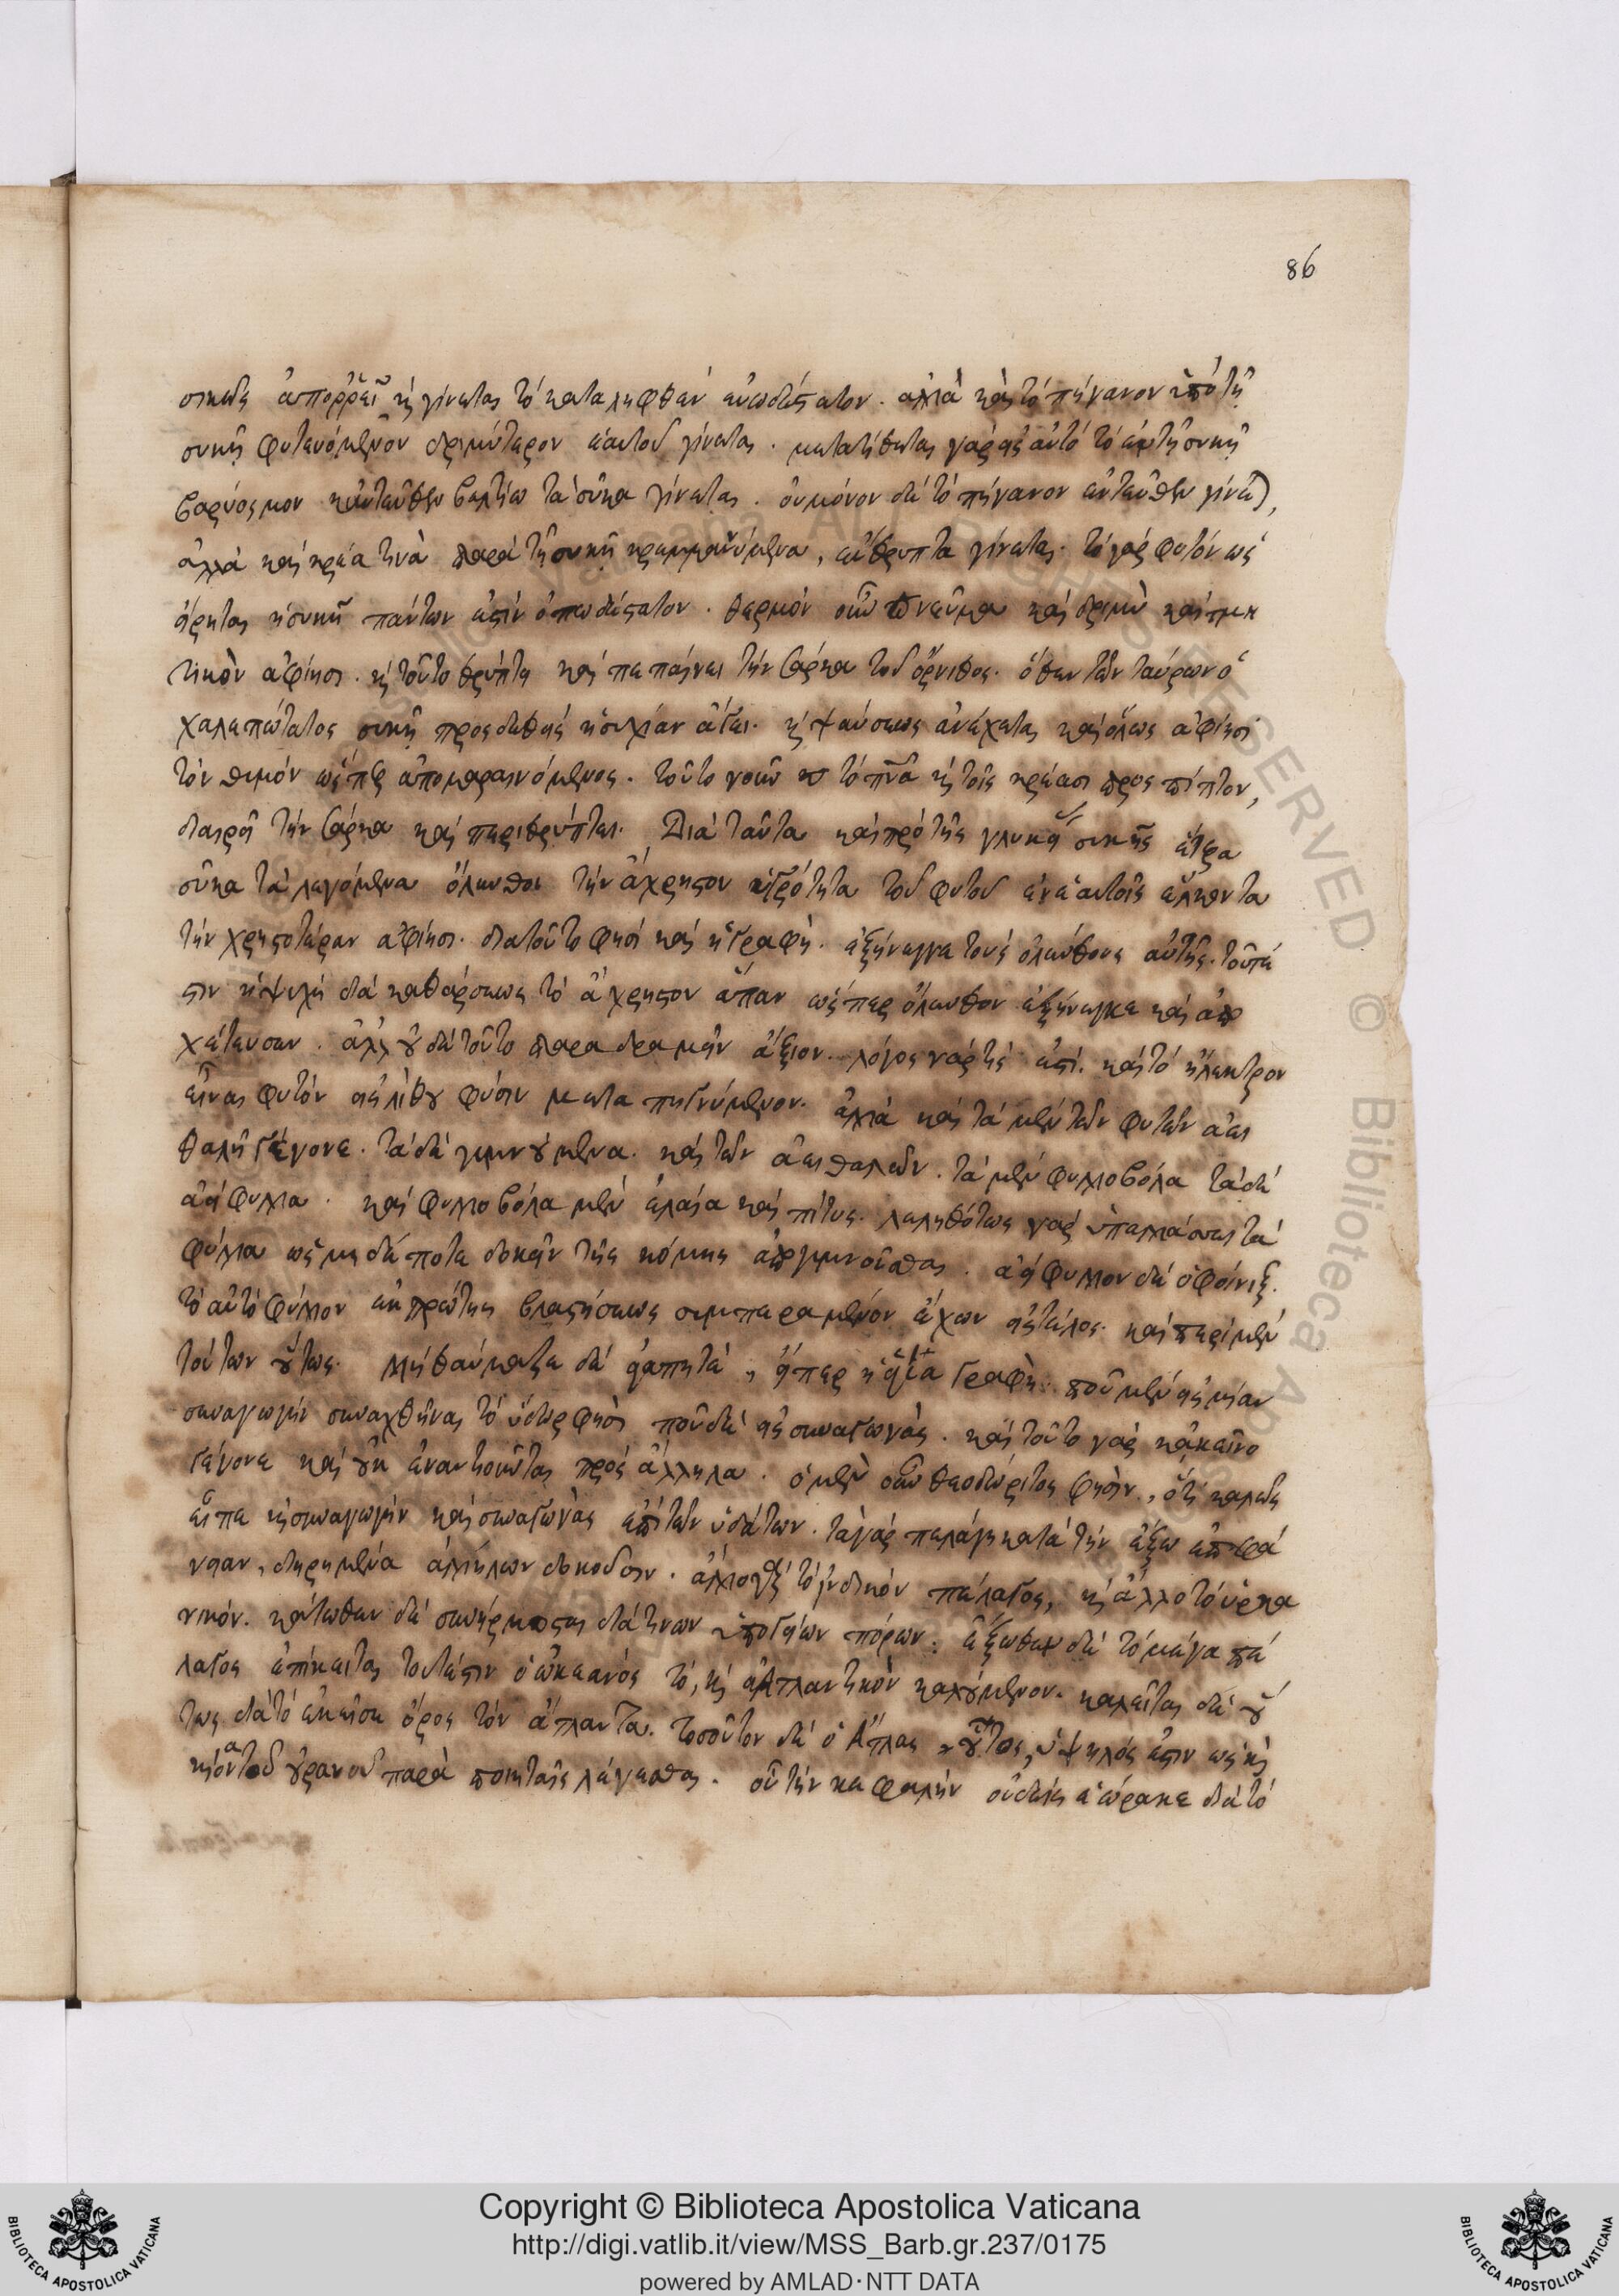 86
συκῆς ἀπορρεῖ κ γίνεται τὸ καταλειφθὲν εὐωδέστατον. ἀλλὰ καὶ τὸ πήγανον ὑπὸ τῇ
συκῇ φυτευόμενον δριμύτερον ἑαυτοῦ γίνεται. μετατίθεται γὰρ εἰς αὐτὸ τὸ ἐκ τῆς συκῆς
βαρύοσμον κἀντεῦθεν βελτίω τὰ σῦκα γίνεται. οὐ μόνον δὲ τὸ πήγανον ἐντεῦθεν γίνεται,
ἀλλὰ καὶ κρέα τινὰ παρὰ τῇ συκῇ κρεμμανύμενα, εὔθρυπτα γίνεται. τὸ γὰρ φυτὸν ὡς
εἴρηται ἡ συκῆ πάντων ἐστὶν ὀπωδέστατον. θερμὸν οὖν πνεῦμα καὶ δριμὺ καὶ τμη
τικὸν ἀφίησι. κ τοῦτο θρύπτει καὶ πεπαίνει τὴν σάρκα τοῦ ὄρνιθος. ὅθεν τῶν ταύρων ὁ
χαλεπώτατος συκῇ προσδεθεὶς ἡσυχίαν ἄγει. κ ψαύσεως ἀνέχεται καὶ ὅλως ἀφίησι
τὸν θυμὸν ὥσπερ ἀπομαραινόμενος. τοῦτο γοῦν τὸ πνα κ τοῖς κρέασι προσπίπτον,
διαιρεῖ τὴν σάρκα καὶ περιθρύπτει. Διὰ ταῦτα καὶ πρὸ τῆς γλυκείας συκῆς ἕτερα
σῦκα τὰ λεγόμενα ὄλυνθοι τὴν ἄχρηστον ὑγρότητα τοῦ φυτοῦ ἐν ἑαυτοῖς ἕλκοντα
τὴν χρηστοτέραν ἀφίησι. διατοῦτο φησὶ καὶ ἡ γραφή. ἐξήνεγκα τοὺς ὀλύνθους αὐτῆς. τουτέ
στιν ἡ ψυχὴ διὰ καθάρσεως τὸ ἄχρηστον ἅπαν ὥσπερ ὄλυνθον ἐξήνεγκε καὶ ἀπ
χέτευσεν. ἀλλ' οὐδὲ τοῦτο παραδραμεῖν ἄξιον. λόγος γὰρ τίς ἐστι. καὶ τὸ ἤλεκτρον
εἶναι φυτὸν εἰς λίθου φύσιν μεταπηγνύμενον. ἀλλὰ καὶ τὰ μὲν τῶν φυτῶν ἀει
θαλῆ γέγονε. τὰ δὲ γυμνούμενα. καὶ τῶν ἀειθαλῶν. τὰ μὲν φυλλοβόλα τὰ δὲ
ἀείφυλλα. καὶ φυλλοβόλα μὲν ἐλαία καὶ πίτυς. λεληθότως γὰρ ὑπαλλάσσει τὰ
φύλλα ὡς μηδέποτε δοκεῖν τῆς κόμης ἀπογυμνοῦσθαι. ἀείφυλλον δὲ ὁ φοίνιξ.
τὸ αὐτὸ φύλλον ἐκ πρώτης βλαστήσεως συμπαραμένον ἔχων εἰς τέλος. καὶ περὶ μὲν
τούτων οὕτως. Μὴ θαύμαζε δὲ ἀγαπητέ, εἴπερ ἡ θεία γραφὴ ποῦ μὲν εἰς μίαν
συναγωγὴν συναχθῆναι τὸ ὕδωρ φησὶ ποῦ δὲ εἰς συναγωγάς. καὶ τοῦτο γὰρ κἀκεῖνο
γέγονε καὶ οὐκ ἐναντιοῦται πρὸς ἄλληλα. ὁ μὲν οὖν θεοδώριτος φησὶν, ὅτι καλῶς
εἶπε κ συναγωγὴν καὶ συναγωγὰς ἐπὶ τῶν ὑδάτων. τὰ γὰρ πελάγη κατὰ τὴν ἔξω ἐπιφά
νειαν, διῃρημένα ἀλλήλων δοκοῦσιν. ἄλλο γὰρ τὸ ἰνδικὸν πέλαγος, κ ἄλλο τὸ ὑρκα
νικόν. κάτωθεν δὲ συνήρμοσται διά τινων ὑπογείων πόρων. ἔξωθεν δὲ τὸ μέγα πέ
λαγος ἐπίκειται τουτέστιν ὁ ὠκεανὸς τό, κ ἀτλαντικὸν καλούμενον. καλεῖται δὲ οὕ
τως διὰ τὸ ἐκεῖσε ὄρος τὸν ἄτλαντα. τοσοῦτον δὲ ὁ Ἄτλας οὗτος, ὑψηλός ἐστιν ὡς κ
κίονα τοῦ οὐρανοῦ παρὰ ποιηταῖς λέγεσθαι. οὗ τὴν κεφαλὴν οὐδεὶς ἑώρακε διὰ τὸ
Copyright © Biblioteca Apostolica Vaticana
http://digi.vatlib.it/view/MSS_Barb.gr.237/0175
powered by AMLAD·NTT DATA
BIBLIOTECA APOSTOLICA VATICANA
BIBLIOTECA APOSTOLICA VATICANA